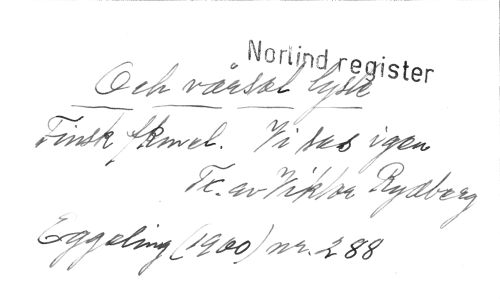 Norlind register
Och vårsol lyst
Finsk fkmel. Vi ses igen
Tx. av Viktor Rydberg
Eggeling (1900) nr. 288